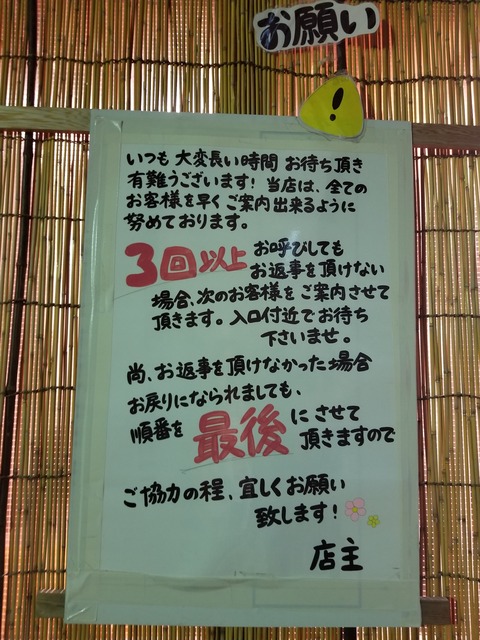 お願い
!
いつも 大変長い時間 お待ち頂き
有難うございます! 当店は、全ての
お客様を早く ご案内出来るように
努めております。
3回以上 お呼びしても
お返事を頂けない
場合、次のお客様を ご案内させて
頂きます。入口付近でお待ち
下さいませ。
尚、お返事を頂けなかった場合
お戻りになられましても、
順番を 最後 に させて
頂きますので
ご協力の程、宜しくお願い
致します!
店主